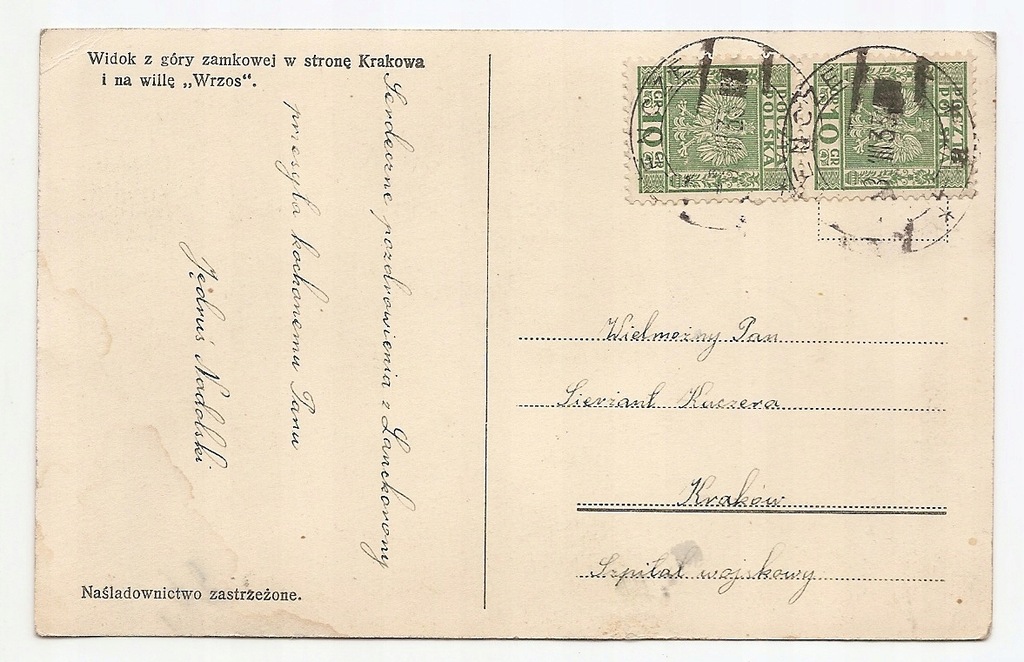 Widok z góry zamkowej w stronę Krakowa
i na willę „Wrzos“.
Serdeczne pozdrowienia z Lanckorony
przesyła kochanemu Panu
Jędruś Nadolski
Naśladownictwo zastrzeżone.
10 GR
POCZTA
POLSKA
10 GR
POCZTA
POLSKA
Wielmożny Pan
Sierżant Kuczera
Kraków
Szpital wojskowy